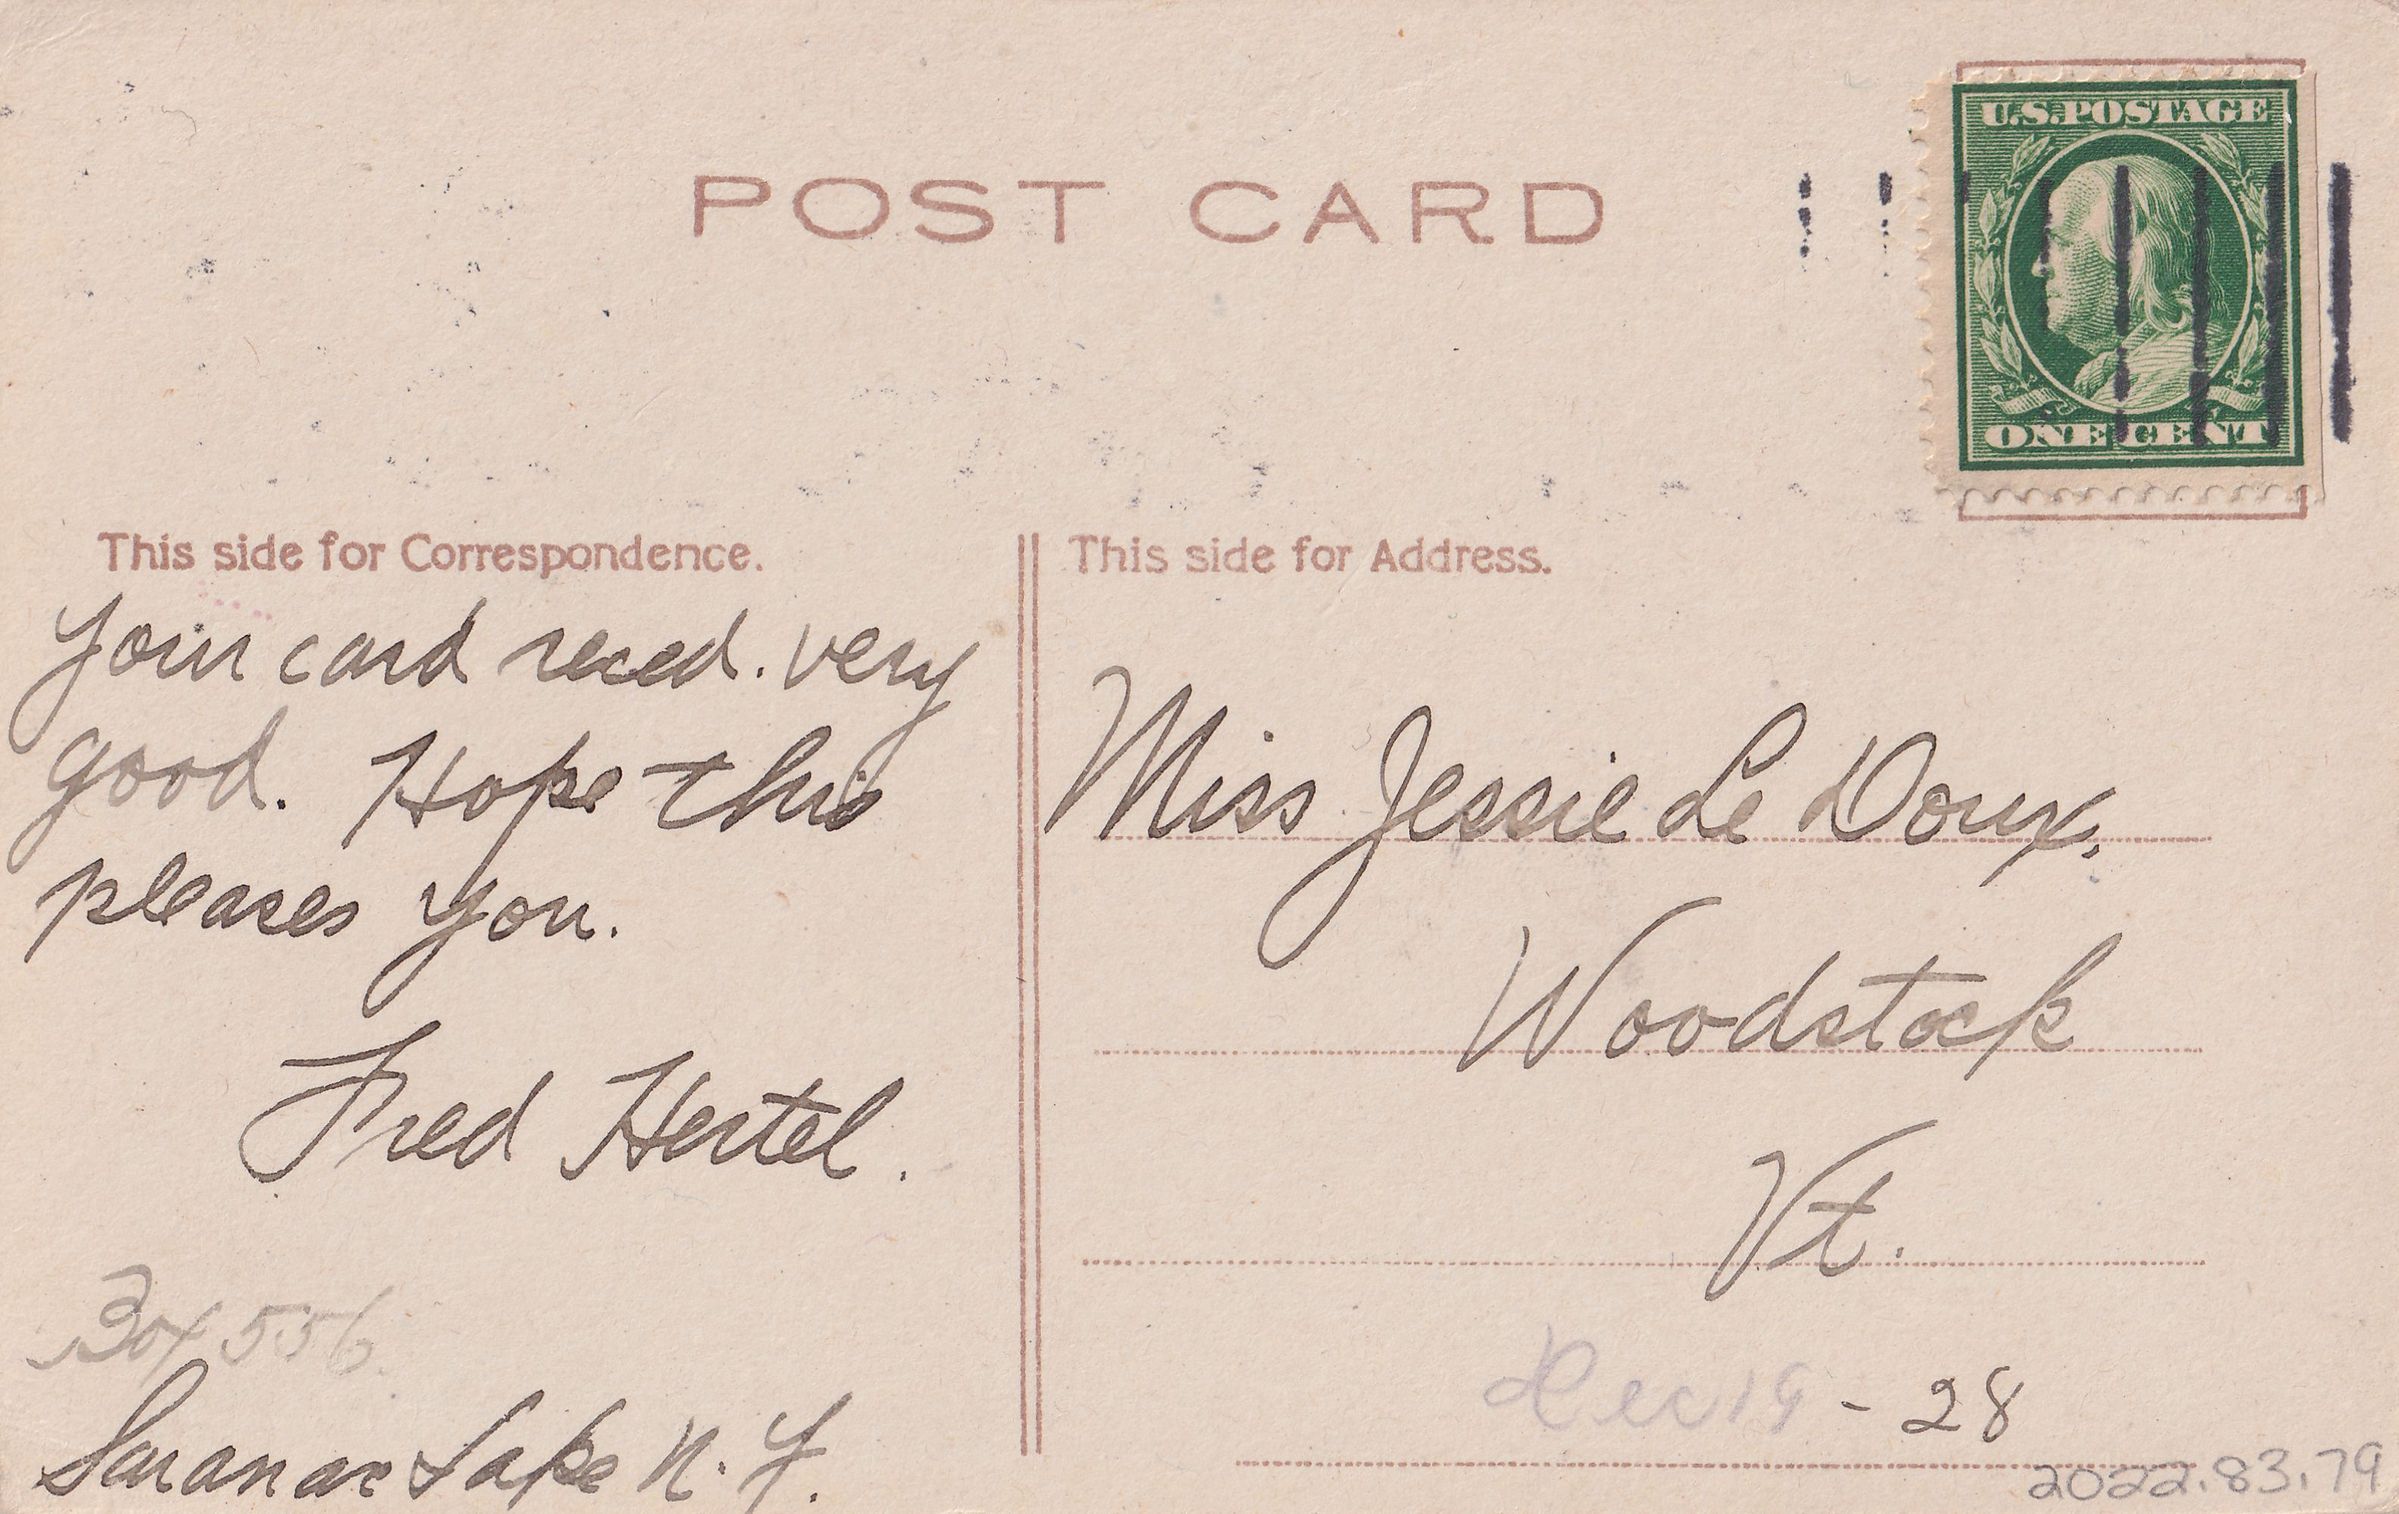 POST CARD
U.S. POSTAGE
ONE CENT
This side for Correspondence.
Your card reced. very
good. Hope this
pleases you.
Fred Hertel.
Box 556
Saranac Lake N. Y.
This side for Address.
Miss Jessie Le Doux,
Woodstock
Vt.
Dec 19 - 28
2022.83.79